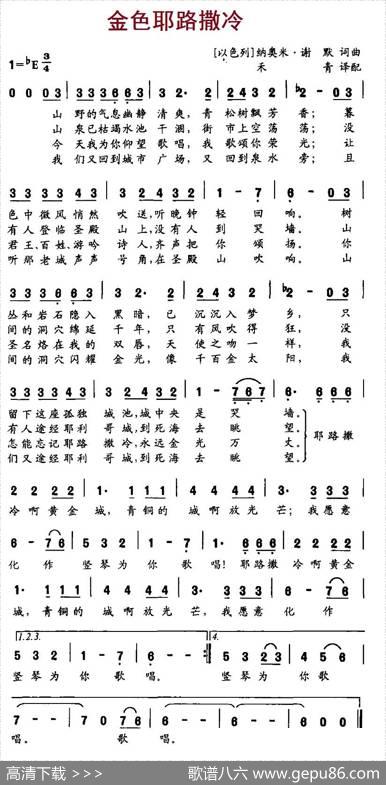 金色耶路撒冷
[以色列]纳奥米·谢 默 词曲
1=♭E 3/4 禾 青 译配
0 0 03 | 33363 3· | 3 2432 | ♭2 - 03 |
山 野的气息幽静 清爽, 青 松树飘芳 香; 暮
山 泉已枯竭水池 干涸, 街 市上空荡 荡; 没
今 天我为你仰望 歌唱, 我 歌颂你荣 光; 让
我 们又回到城市 广场, 又 回到泉水 旁; 且
33 33 43 | 3· 2432 | 1 - 7 | 6 - 03 |
色中 微风 悄然 吹 送,听晚钟 轻 回 响。 树
有人 登临 圣殿 山 上,没有人 到 哭 墙。 山
君王、百姓、游吟 诗 人,齐声把 你 颂 扬。 你
听那 老城 声声 号 角,在圣殿 山 吹 响。 山
33 36 63 | 3 2· 2 | 7 7 12 | ♭2 - 03 |
丛和 岩石 隐入 黑 暗, 已 沉沉入梦 乡, 只
间的 洞穴 绵延 千 年, 只 有风吹得 狂, 没
圣名 烙在 我的 双 唇, 天 使之吻一 样, 我
间的 洞穴 闪耀 金 光, 像 千百金太 阳, 我
33 33 43 | 3 2432 | 1 - 767 | 6· 666 |
留下 这座 孤独 城 池,城中央 是 哭 墙。
有人 途经 耶利 哥 城,到死海 去 眺 望。 耶路撒
怎能 忘记 耶路 撒 冷,永远金 光 万 丈。
们又 途经 耶利 哥 城,到死海 去 眺 望。
冷啊 黄金 城, 青铜的 城啊放光 芒;我愿意
化 作 竖琴为 你 歌 唱! 耶路撒 冷啊黄金
城, 青铜的 城 啊放光 芒, 我愿意 化 作
1.2.3. 4.
5 3 2 | 1 - 7 | 6 - - :|| 5 3 23 | 4 5 6 |
竖琴为 你 歌 唱。 竖琴为 你 歌
7 - - | 7 0 76 | 7 - - | 7 - - ||
唱。 歌 唱。
高清下载 >>> 歌谱八六 www.gepu86.com